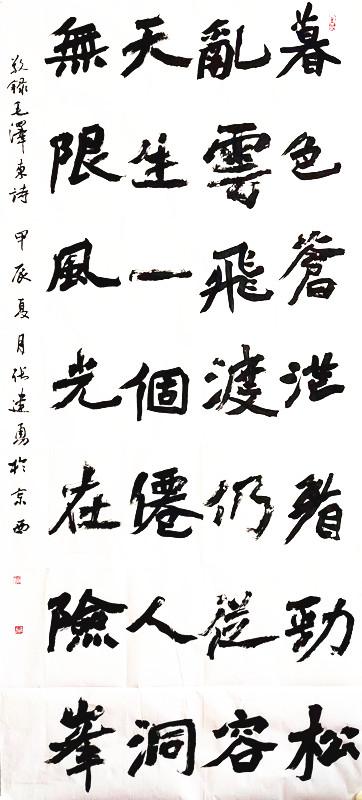 暮色蒼茫看勁松
亂雲飛渡仍從容
天生一個僊人洞
無限風光在險峯
敬錄毛澤東詩 甲辰夏月張建勇於京西